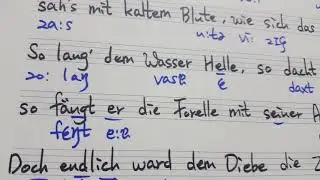 sah's mit kaltem Blute, wie sich das
za:s u:tə vi: zıç
So lang' dem Wasser Helle, so dacht
zo: laŋ vasɐ ɛ daxt
so fängt er die Forelle mit seiner A
fɛŋt e:ɐ
Doch endlich ward dem Diebe die Z